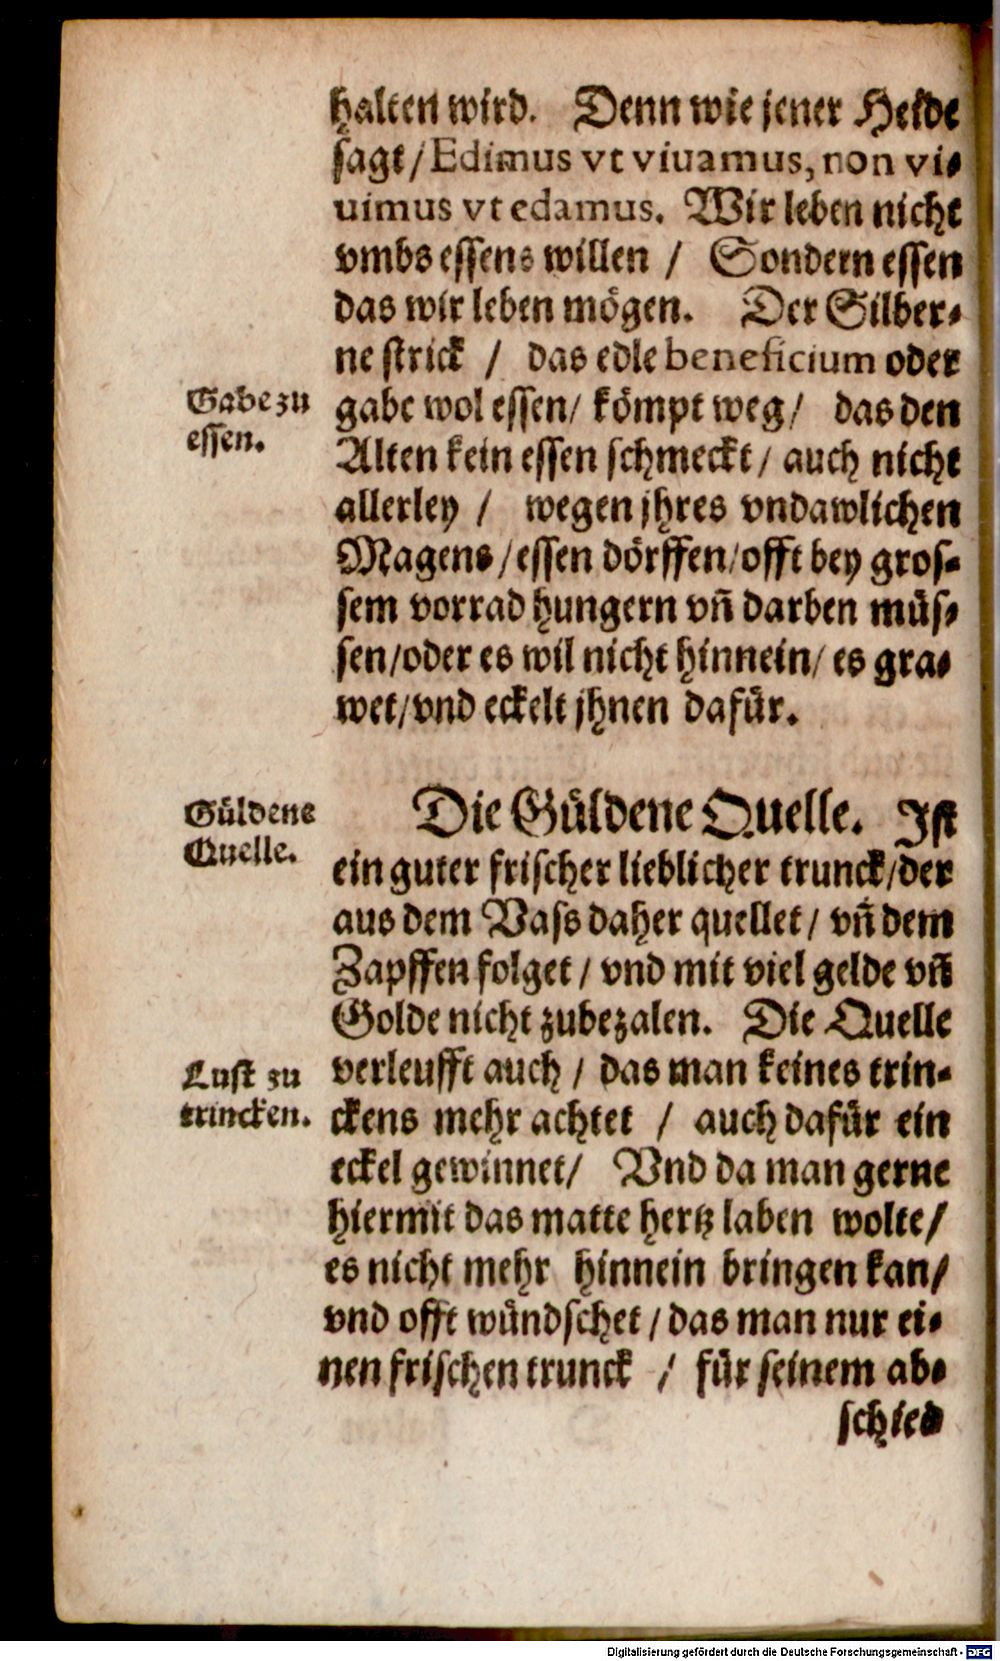 halten wird. Denn wie jener Heide
sagt/ Edimus vt viuamus, non vi-
uimus vt edamus. Wir leben nicht
vmbs essens willen / Sondern essen
das wir leben mögen. Der Silber-
ne strick / das edle beneficium oder
Gabe zu
essen.
gabe wol essen/ kömpt weg/ das den
Alten kein essen schmeckt/ auch nicht
allerley / wegen jhres vndawlichen
Magens/essen dörffen/offt bey gros-
sem vorrad hungern vñ darben müs-
sen/oder es wil nicht hinnein/ es gra-
wet/vnd eckelt jhnen dafür.
Güldene
Quelle.
Die Güldene Quelle. Ist
ein guter frischer lieblicher trunck/der
aus dem Vass daher quellet/ vñ dem
Zapffen folget/ vnd mit viel gelde vñ
Golde nicht zubezalen. Die Quelle
Lust zu
trincken.
verleufft auch / das man keines trin-
ckens mehr achtet / auch dafür ein
eckel gewinnet/ Vnd da man gerne
hiermit das matte hertz laben wolte/
es nicht mehr hinnein bringen kan/
vnd offt wündschet / das man nur ei-
nen frischen trunck / für seinem ab-
schied
Digitalisierung gefördert durch die Deutsche Forschungsgemeinschaft - DFG